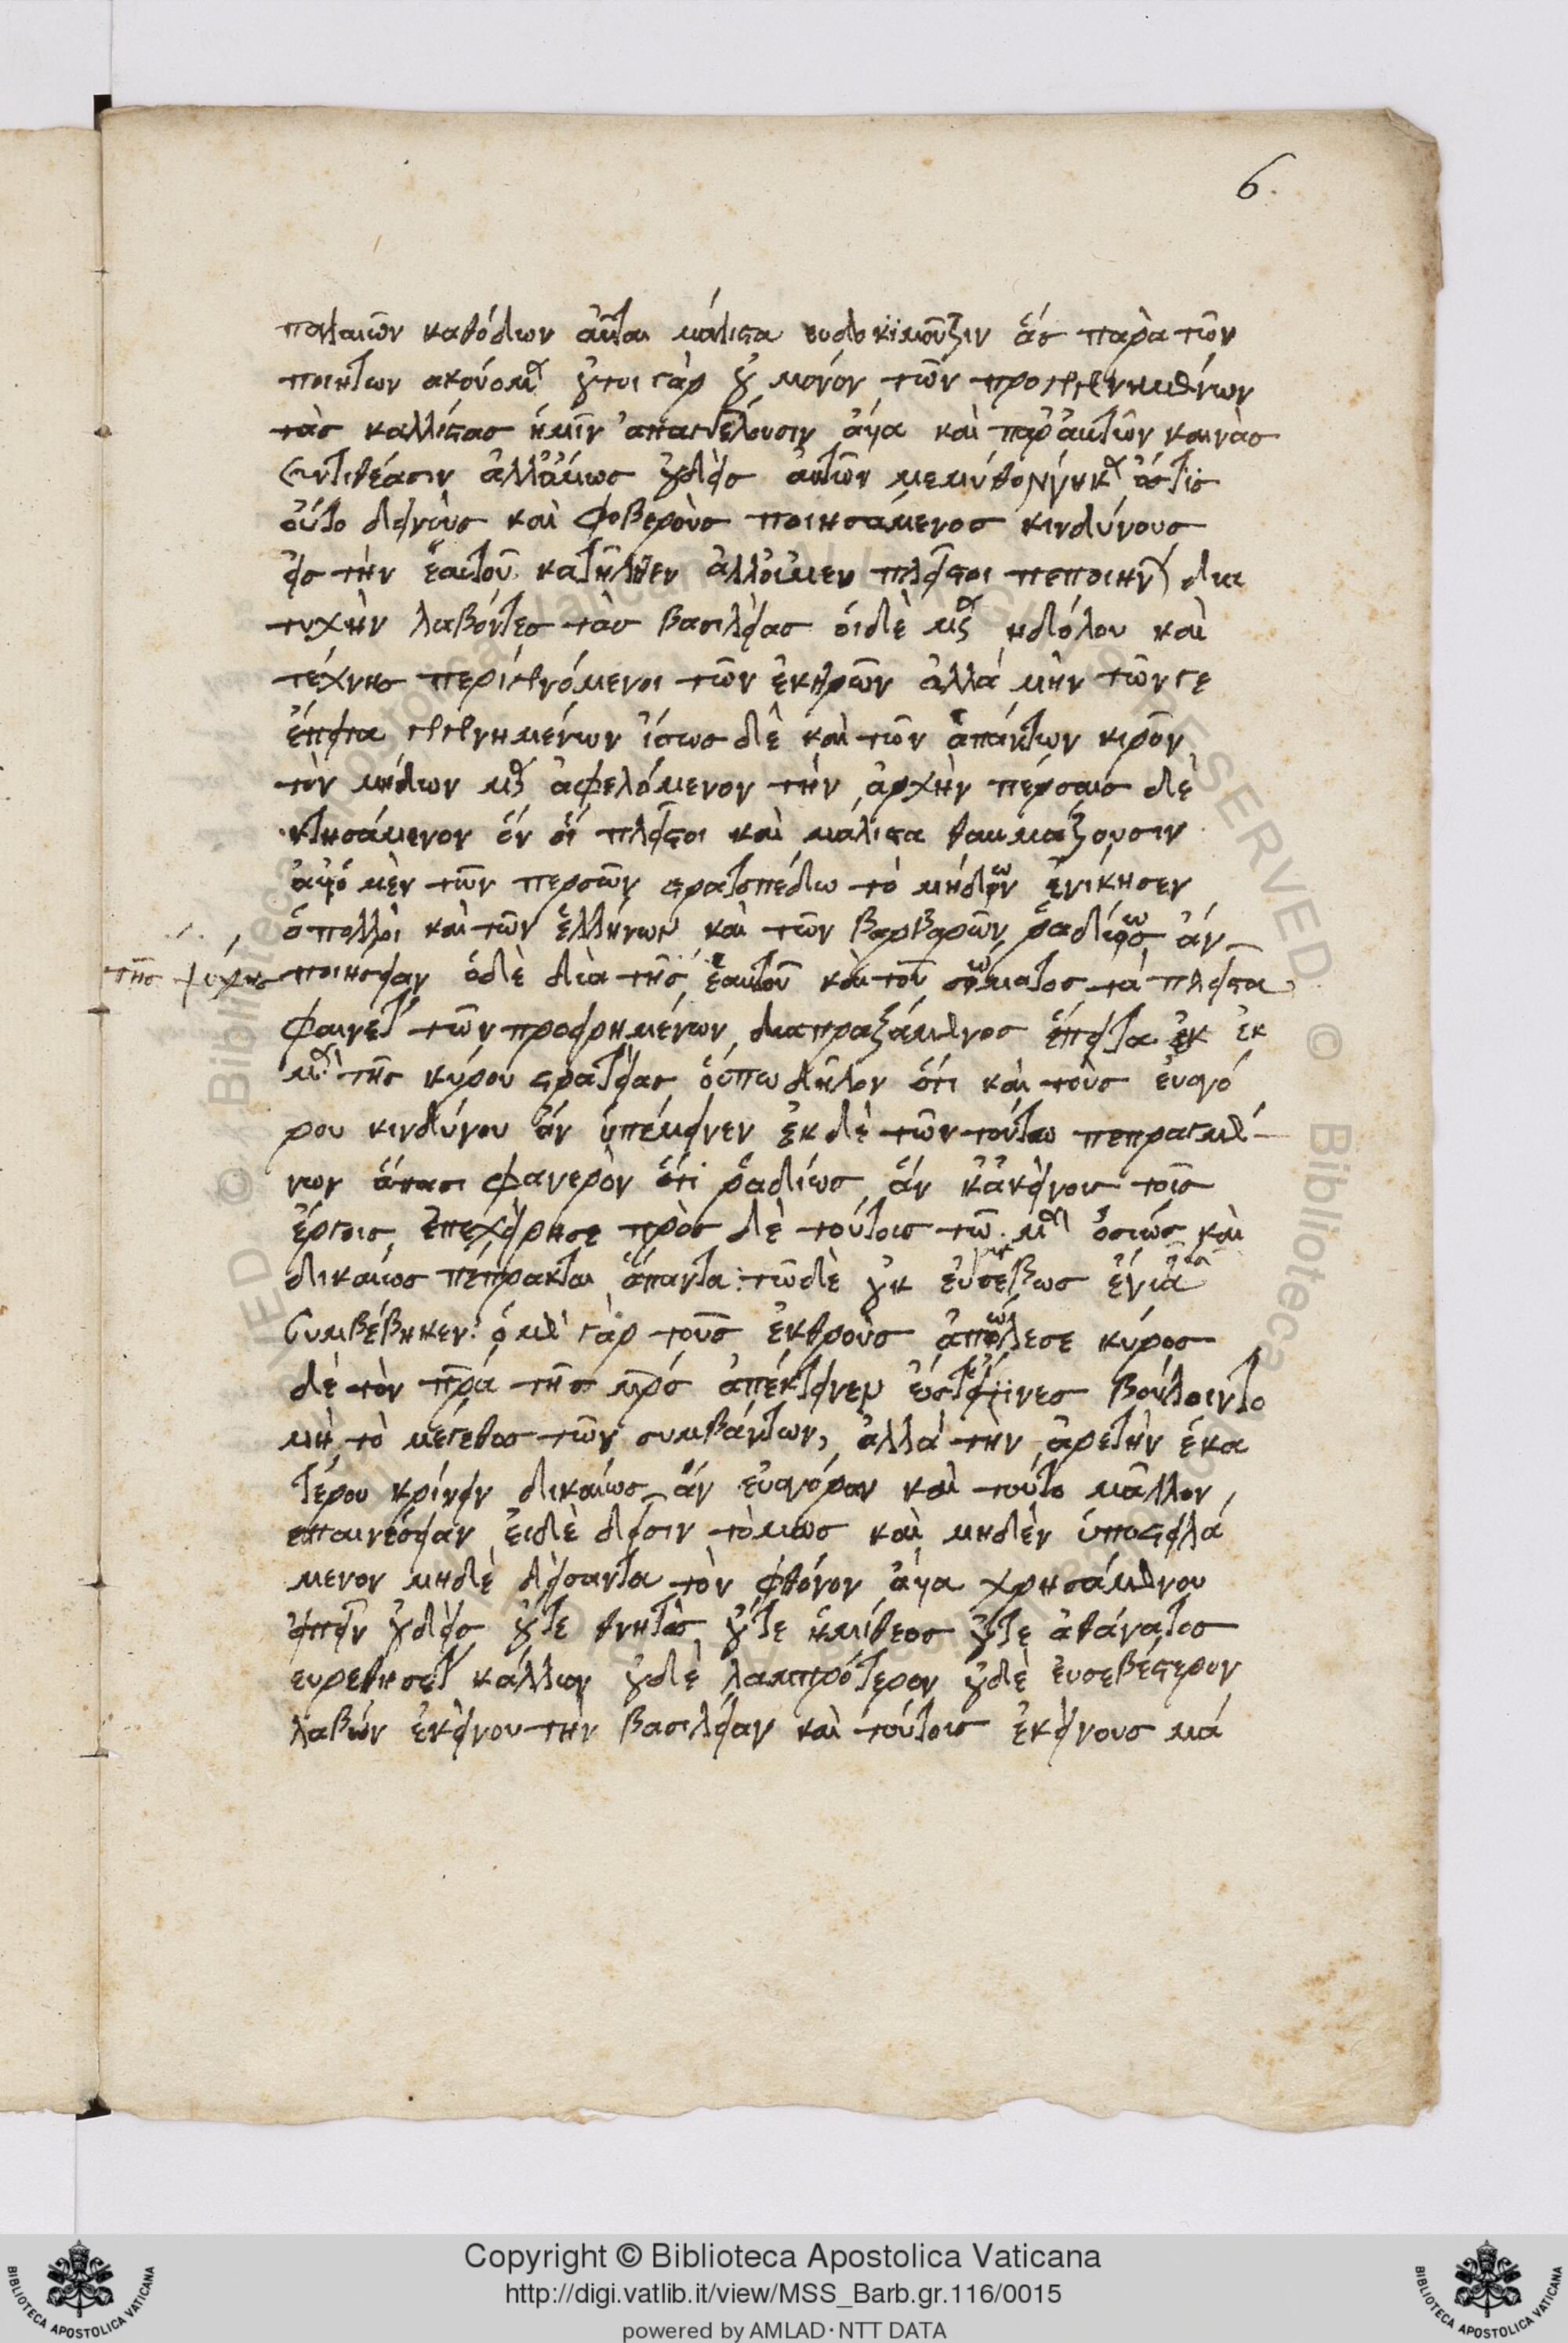 6.
παλαιῶν καθόδων αὗται μάλιστα ευδοκιμοῦσιν ἅς παρὰ τῶν
ποιητων ακούομεν οὗτοι γὰρ οὐ μονόν τῶν προγεγενημένων
τὰς καλλίστας ἡμῖν απαγγέλουσιν ἀλλα καὶ παρ ἀυτῶν καινὰς
Συντιθέασιν ἀλλ ὅμως οὐδεὶς ἀυτῶν μεμυθολόγηκεν ὅστις
οὕτο δεινοὺς καὶ φοβεροὺς ποιησάμενος κινδύνους
εἰς τὴν ἑαυτοῦ κατῆλθεν ἀλλ οἱ μεν πλεῖστοι πεποιηνται δια
τυχὴν λαβόντες τὰς βασιλείας οἱ δὲ μετὰ δόλου καὶ
τέχνης περιγενόμενοι τῶν ἐκθρῶν ἀλλά μὴν τῶν γε
ἔπειτα γεγενημένων ἴσως δὲ καὶ τῶν ἁπάντων κιρον
τὸν μήδων μὲν ἀφελόμενον τὴν ἀρχὴν πέρσαις δὲ
κτησάμενον ὃν οἱ πλεῖστοι καὶ μάλιστα θαυμαζουσιν
ἀλλ ὁ μὲν τῶν περσῶν στρατοπέδω τὸ μήδων ἐνίκησεν
ὁ πολλοὶ καὶ τῶν ἑλλήνων καὶ τῶν βαρβαρῶν ῥαδίως ἀν
τῆς ψύχης ποιησειαν ὁ δὲ δια τῆς ἑαυτοῦ καὶ τοῦ σώματος τὰ πλεῖστα
φαινεται τῶν προειρημένων διαπραξάμενος ἔπειτα ἐκ ἐκ
μὲν τῆς κύρου στρατείας οὔπω δῆλον ὅτι καὶ τοὺς ἐυαγό
ρου κινδύνου ἂν ὑπέμεινεν ἐκ δὲ τῶν τούτω πεπραγμέ
νων ἅπασι φανερὸν ὅτι ῥαδίως ἂν κἀκείνοις τοῖς
ἔργοις ἐπεχείρησε πρὸς δὲ τούτοις τῶ μὲν ὁσιώς καὶ
δικαίως πεπρακται ἅπαντα: τῶ δὲ οὐκ εὐσεβως ἔνια
Συμβέβηκεν: ὁ μὲν γὰρ τοὺς ἐκθροὺς ἀπώλεσε κύρος
δὲ τὸν πρα τῆς μρός ἀπέκτεινεν ὥστ εἴ τινες βούλοιντο
μὴ τὸ μέγεθος τῶν συμβάντων, ἀλλά τὴν ἀρετὴν ἑκα
τέρου κρίνειν δικαίως ἂν εὐαγόραν καὶ τούτο μᾶλλον
επαινέσειαν ἐι δὲ δεῖ συντόμως καὶ μηδὲν ὑποστειλά
μενον μηδὲ δείσαντα τὸν φθόνον ἀλλα χρησάμενον
εἰπεῖν οὐδεὶς οὔτε θνητὸς οὔτε ἡμίθεος οὔτε ἀθάνατος
ευρεθησεται κάλλιον οὐδὲ λαμπρότερον οὐδὲ ἐυσεβέστερον
λαβὼν ἐκείνου τὴν βασιλείαν καὶ τούτοις ἐκείνους μά
Copyright © Biblioteca Apostolica Vaticana
http://digi.vatlib.it/view/MSS_Barb.gr.116/0015
powered by AMLAD · NTT DATA